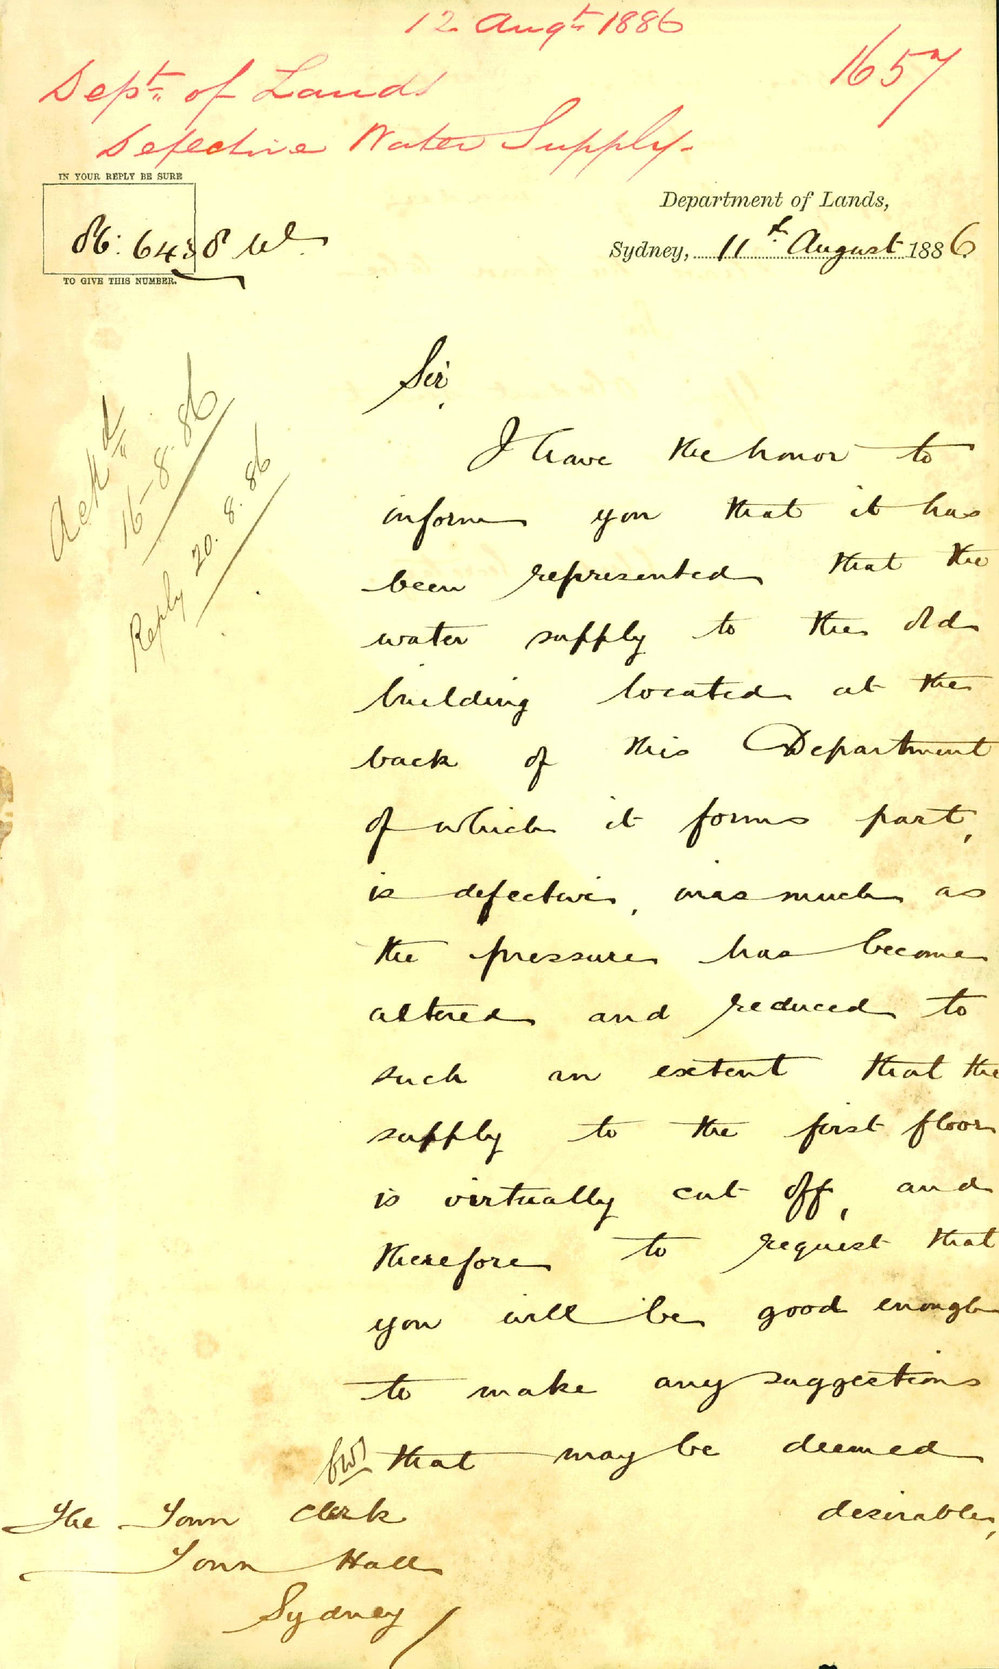 12 Augt. 1886
1657
Dept. of Lands
Defective Water Supply.
IN YOUR REPLY BE SURE
86: 6438
TO GIVE THIS NUMBER.
Department of Lands,
Sydney, 11th August 1886.
Ackd
16-8.86
Reply 20.8.86
Sir,
I have the honor to
inform you that it has
been represented that the
water supply to the old
building located at the
back of this Department
of which it forms part,
is defective, inasmuch as
the pressure has become
altered and reduced to
such an extent that the
supply to the first floor
is virtually cut off, and
therefore to request that
you will be good enough
to make any suggestions
that may be deemed
desirable,
The Town Clerk
Town Hall
Sydney